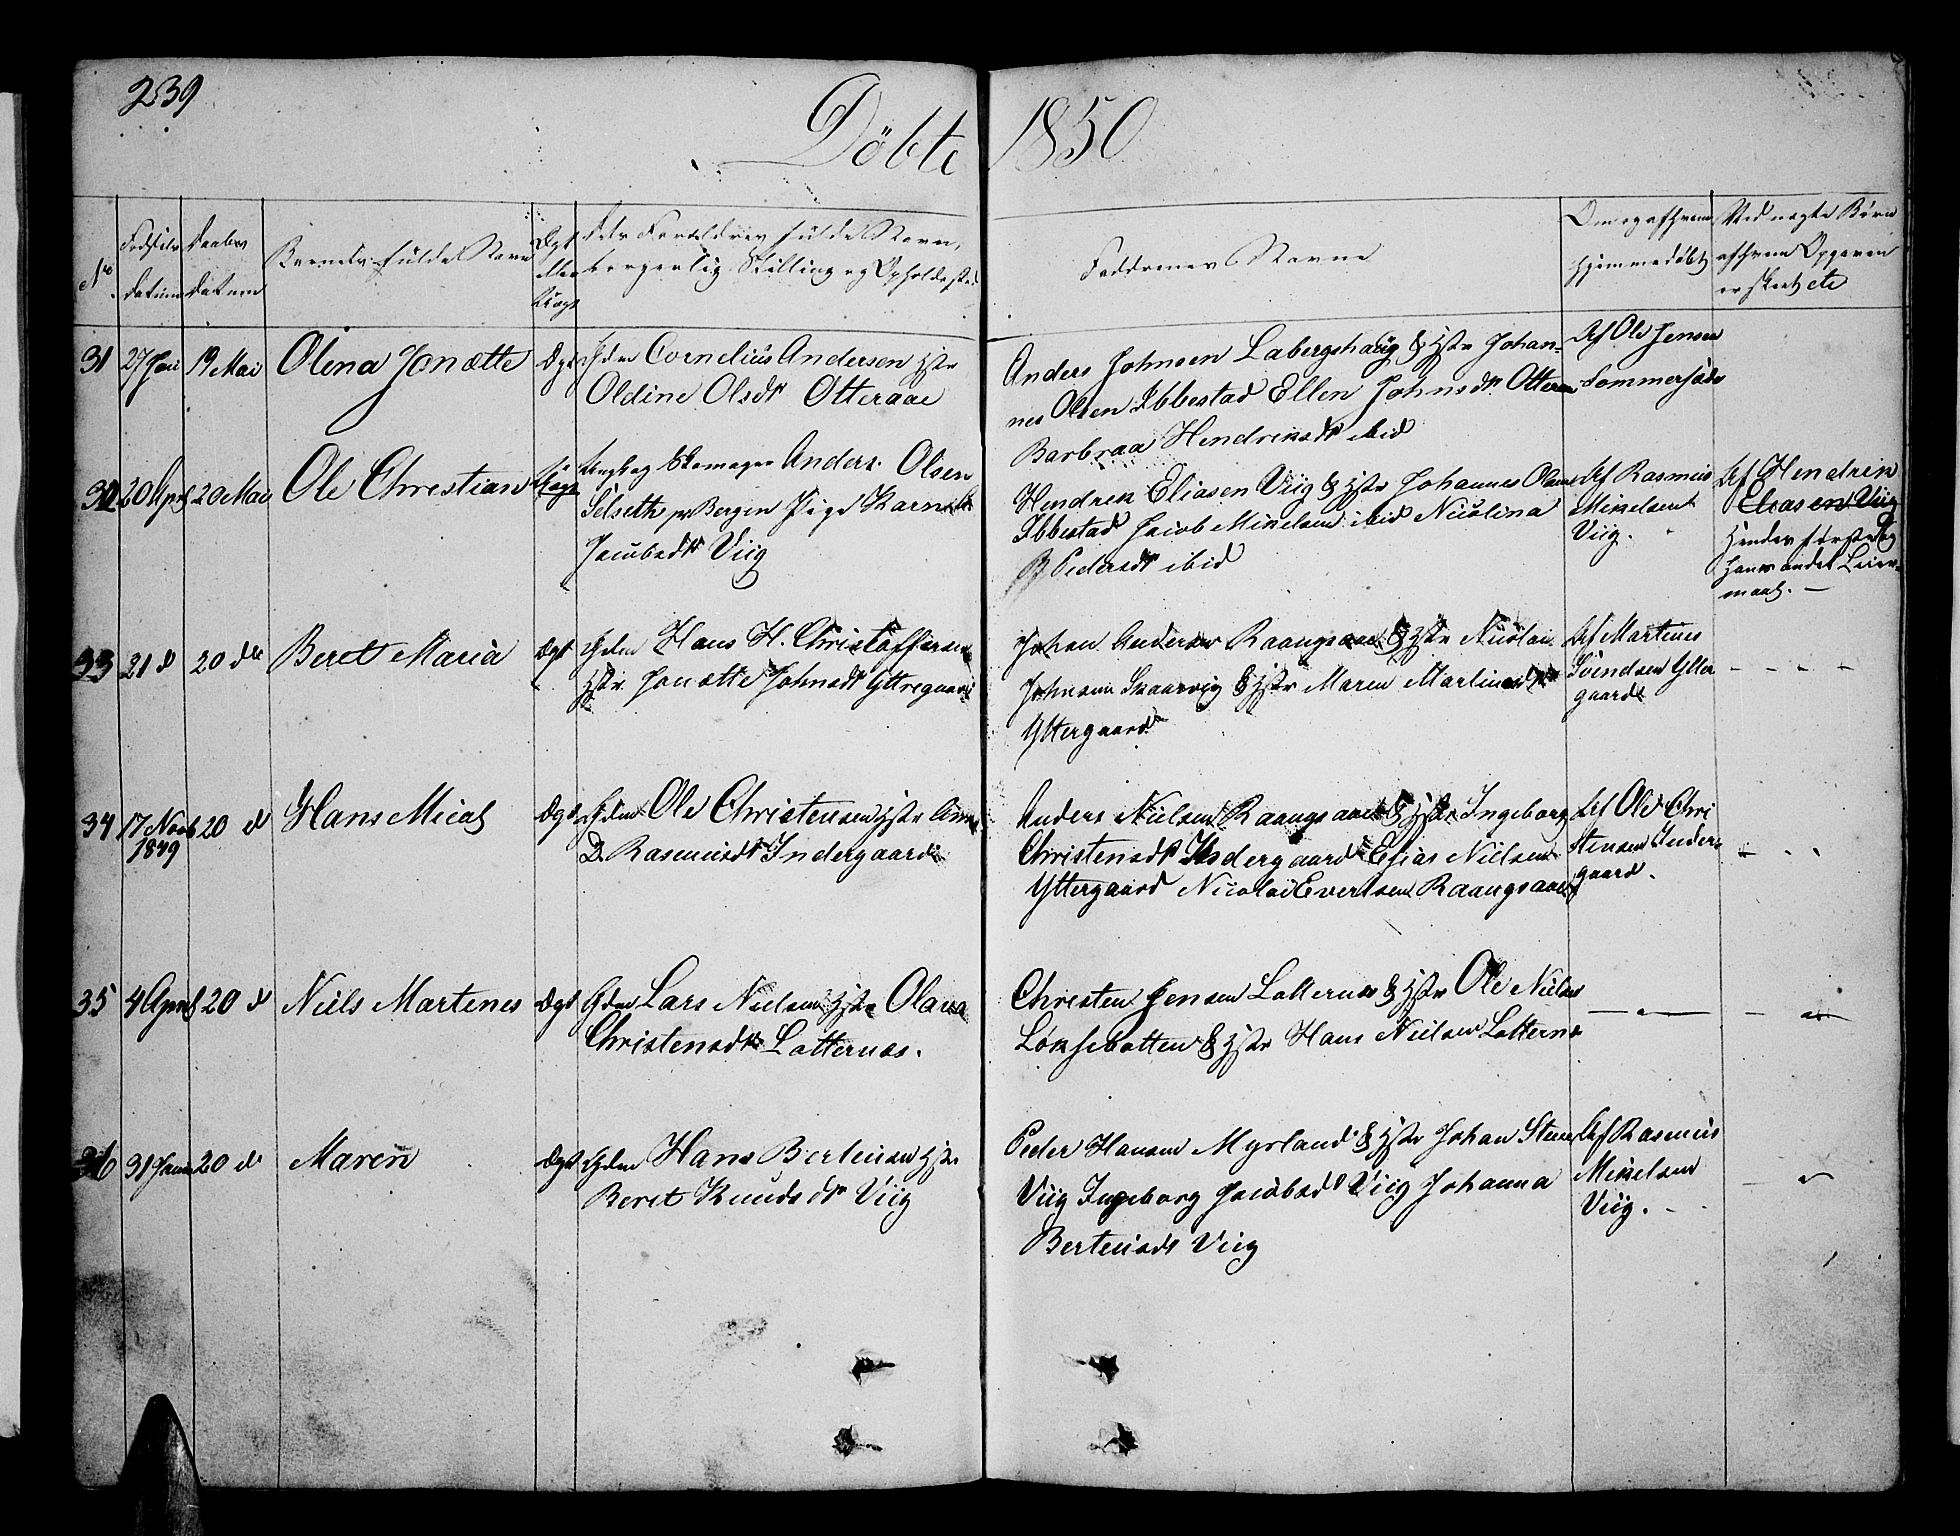 239
Döbte 1850
No
Fødsels datum
Daabes datum
Barnets fulde Navn
Ægt eller Uægt
dets Forældres fulde Navn,
borgerlig Stilling og Opholdssted
Faddernes Navne
Om og af hvem
hjemmedøbt
Ved uægte Børn
af hvem Opgaven
er skeet etc
31 27 Jan 19 Mai Olena Jonætte Ægt Gdm Cornelius Andersen Hstr
Oldine Olsdr Otteraae
Anders Johnsen Labergshaug & Hstr Johan-
nes Olsen Ibbestad Ellen Johnsdr Otteraae
Barbraa Hendriksdr ibid
Af Ole Jensen
Sommersæde
32 20 April 20 Mai Ole Christian Uægt Ungkarl Skomager Anders Olsen
Selseth pr Bergen Pige Karn
Jacobsdr Viig
Hendrik Eliasen Viig & Hstr Johannes Olsen
Ibbestad Jacob Mikelsen ibid Nicolina
B Pedersdr ibid
Af Rasmus
Mikelsen
Viig.
Af Hendrik
Eliasen Viig
Hendes første og
hans andet Leier-
maal. —
33 21 d 20 de Beret Maria Ægt Gdm Hans H. Christoffersen
Hstr Jonætte Johnsdr Yttregaard
Johan Andersen Raangsaae & Hstr Nicolai
Johnsen Skaarvig & Hstr Maren Martinusdr
Yttergaard
Af Martines
Svendsen Ytter
gaard
34 17 Novb 1849 20 d Hans Mical Ægt Gdm Ole Christensen Hstr Anne
D. Rasmusdr Indergaard
Anders Nielsen Raangsaae & Hstr Ingeborg
Christensdr Indergaard Esias Nielsen
Yttergaard Nicolai Evertsen Raangsaae
Af Ole Chri
stensen Inder-
gaard.
35 4 April 20 d Niels Martenes Ægt Gdm Lars Nielsen Hstr Olava
Christensdr Lotternæs.
Christen Jensen Lotternæs & Hstr Ole Nielsen
Løksebotten & Hstr Hans Nielsen Lotternæs
36 31 Janu 20 de Maren Ægt Gdm Hans Berteusen Hstr
Beret Knudsdr Viig
Peder Hansen Myrland & Hstr Johan Steen
Viig Ingeborg Jacobsdr Viig Johanna
Berteusdr Viig
Af Rasmus
Mikelsen
Viig.